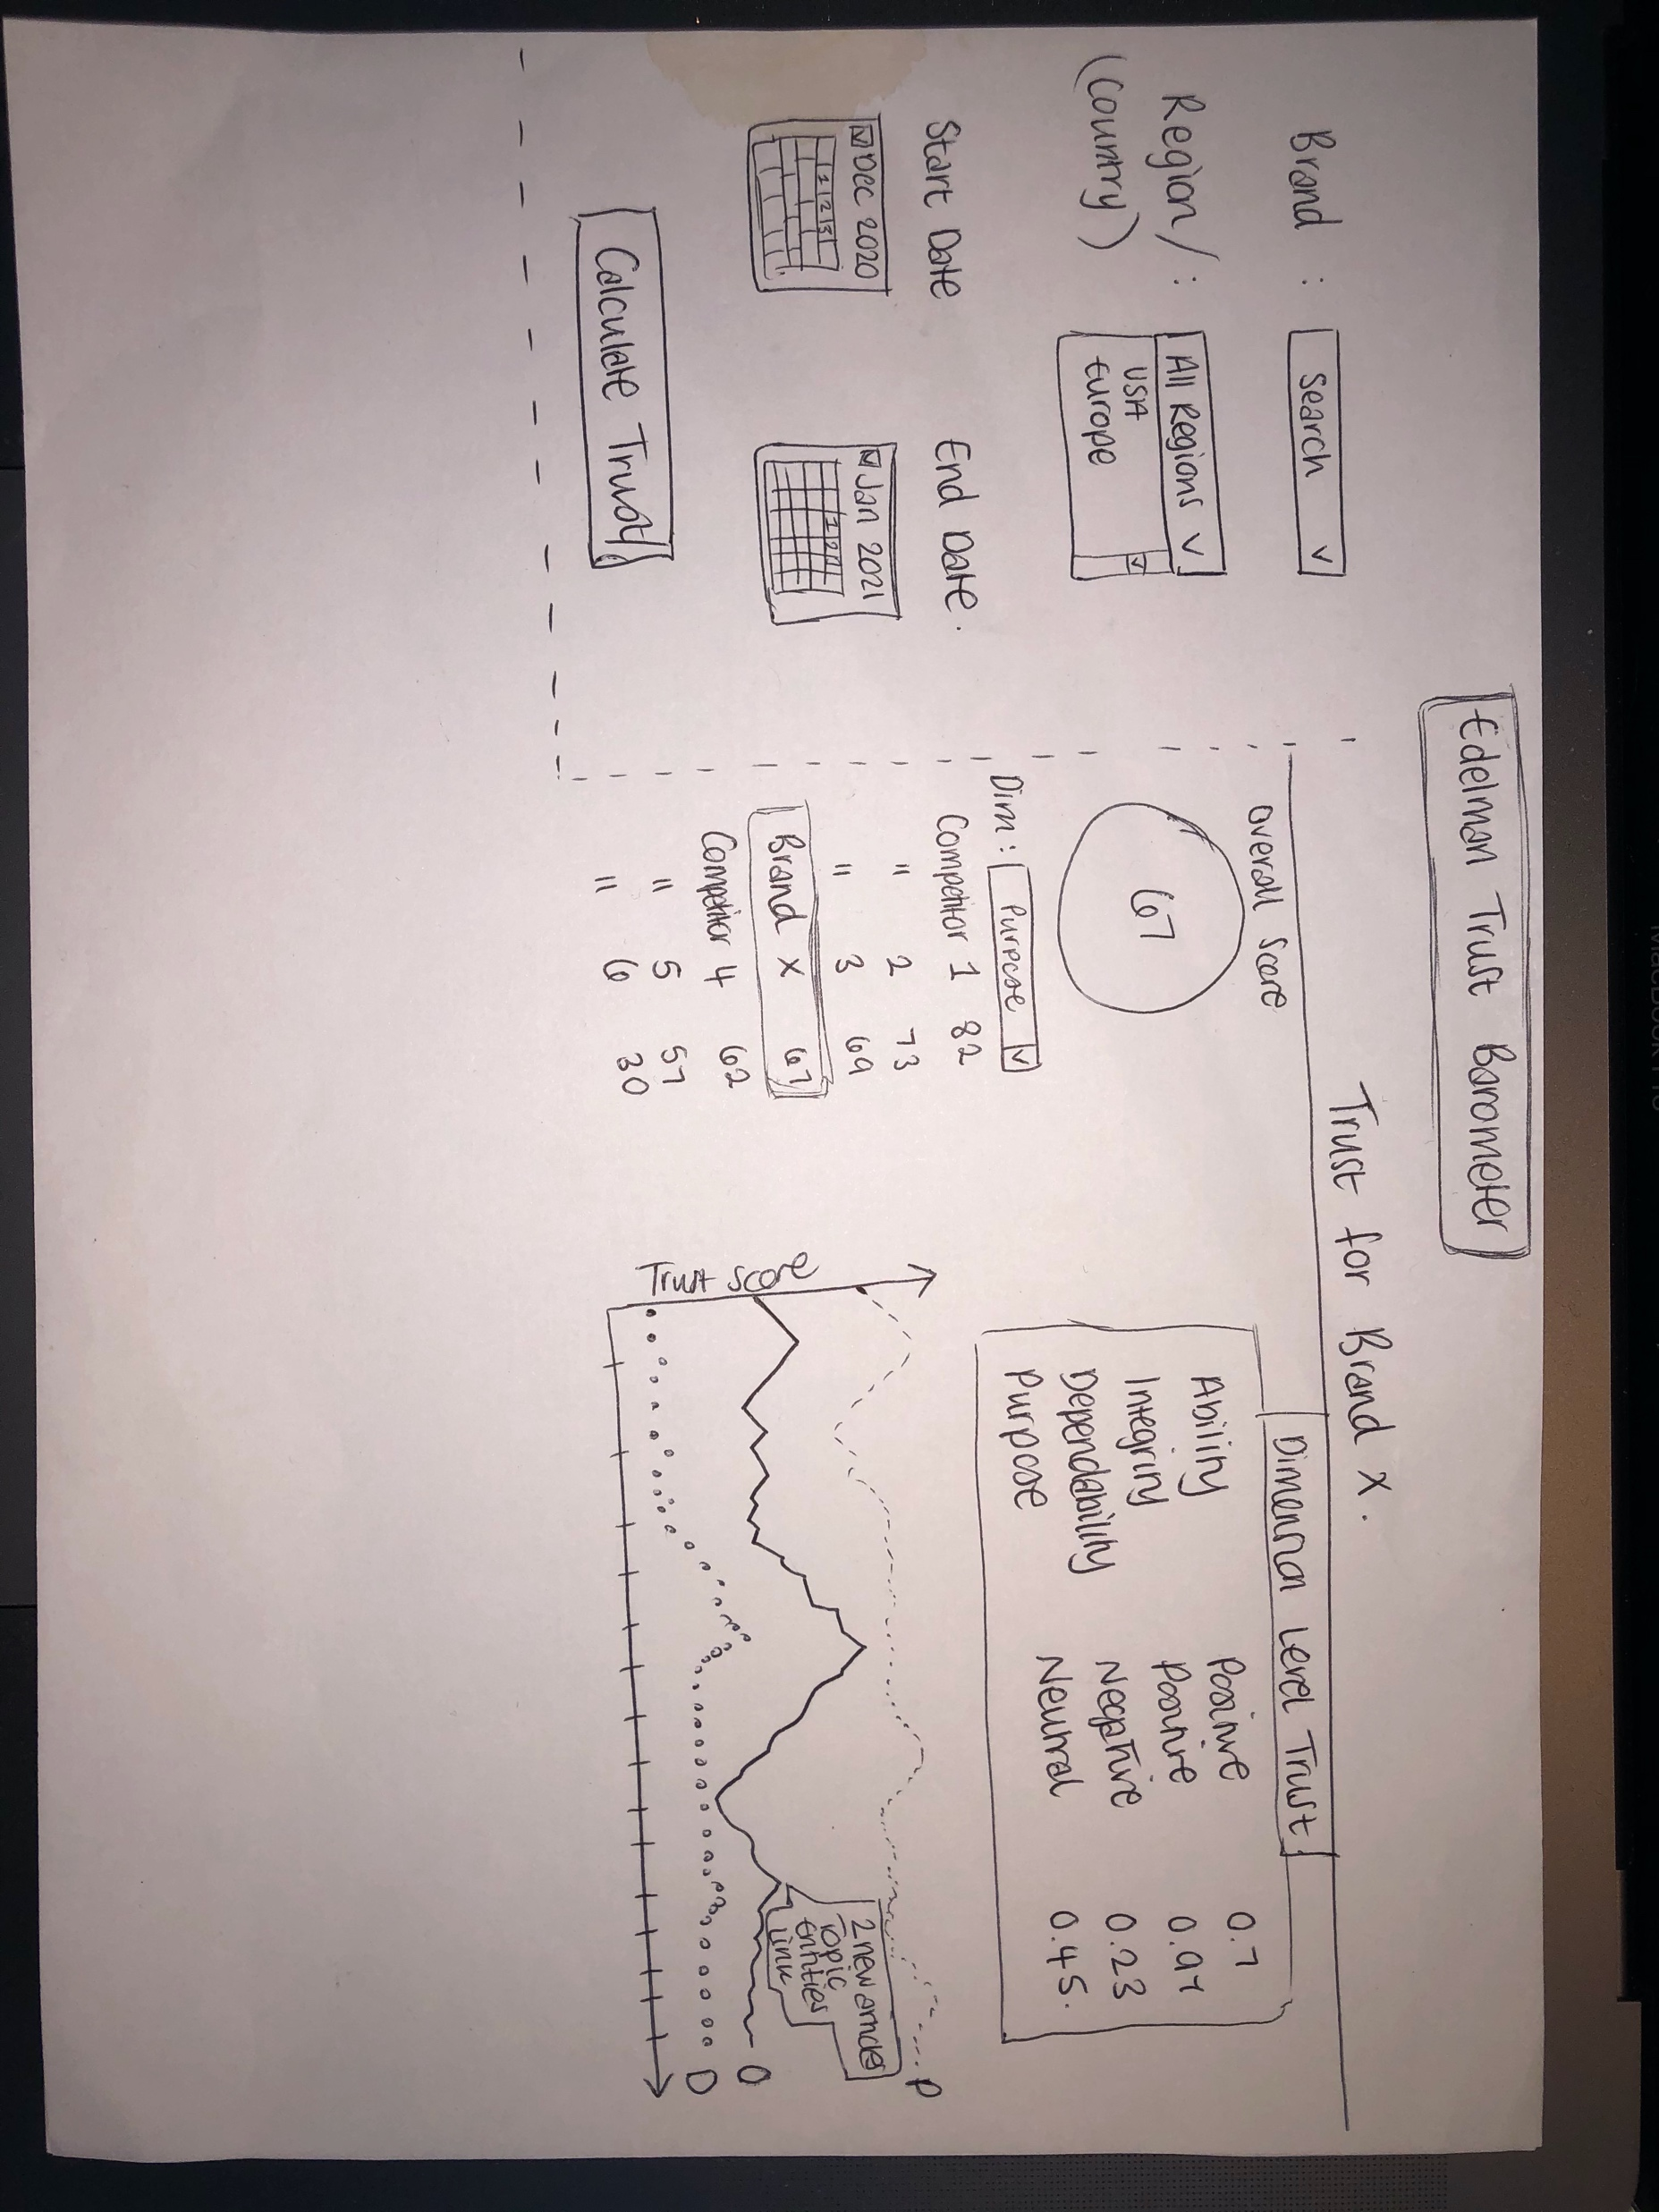 Edelman Trust Barometer
Brand : Search
Region/ :
(Country)
All Regions
USA
Europe
Start Date
End Date.
Dec 2020
1 2 3
Jan 2021
1 2
Calculate Trust
Trust for Brand X.
overall score
67
Dim: Purpose
Competitor 1 82
" 2 73
" 3 69
Brand X 67
Competitor 4 62
" 5 57
" 6 30
Dimension Level Trust
Ability Positive 0.7
Integrity Positive
Dependability Negative 0.23
Purpose Neutral 0.45.
Trust score
2 new articles
Topic
Entities
Link
P
O
D